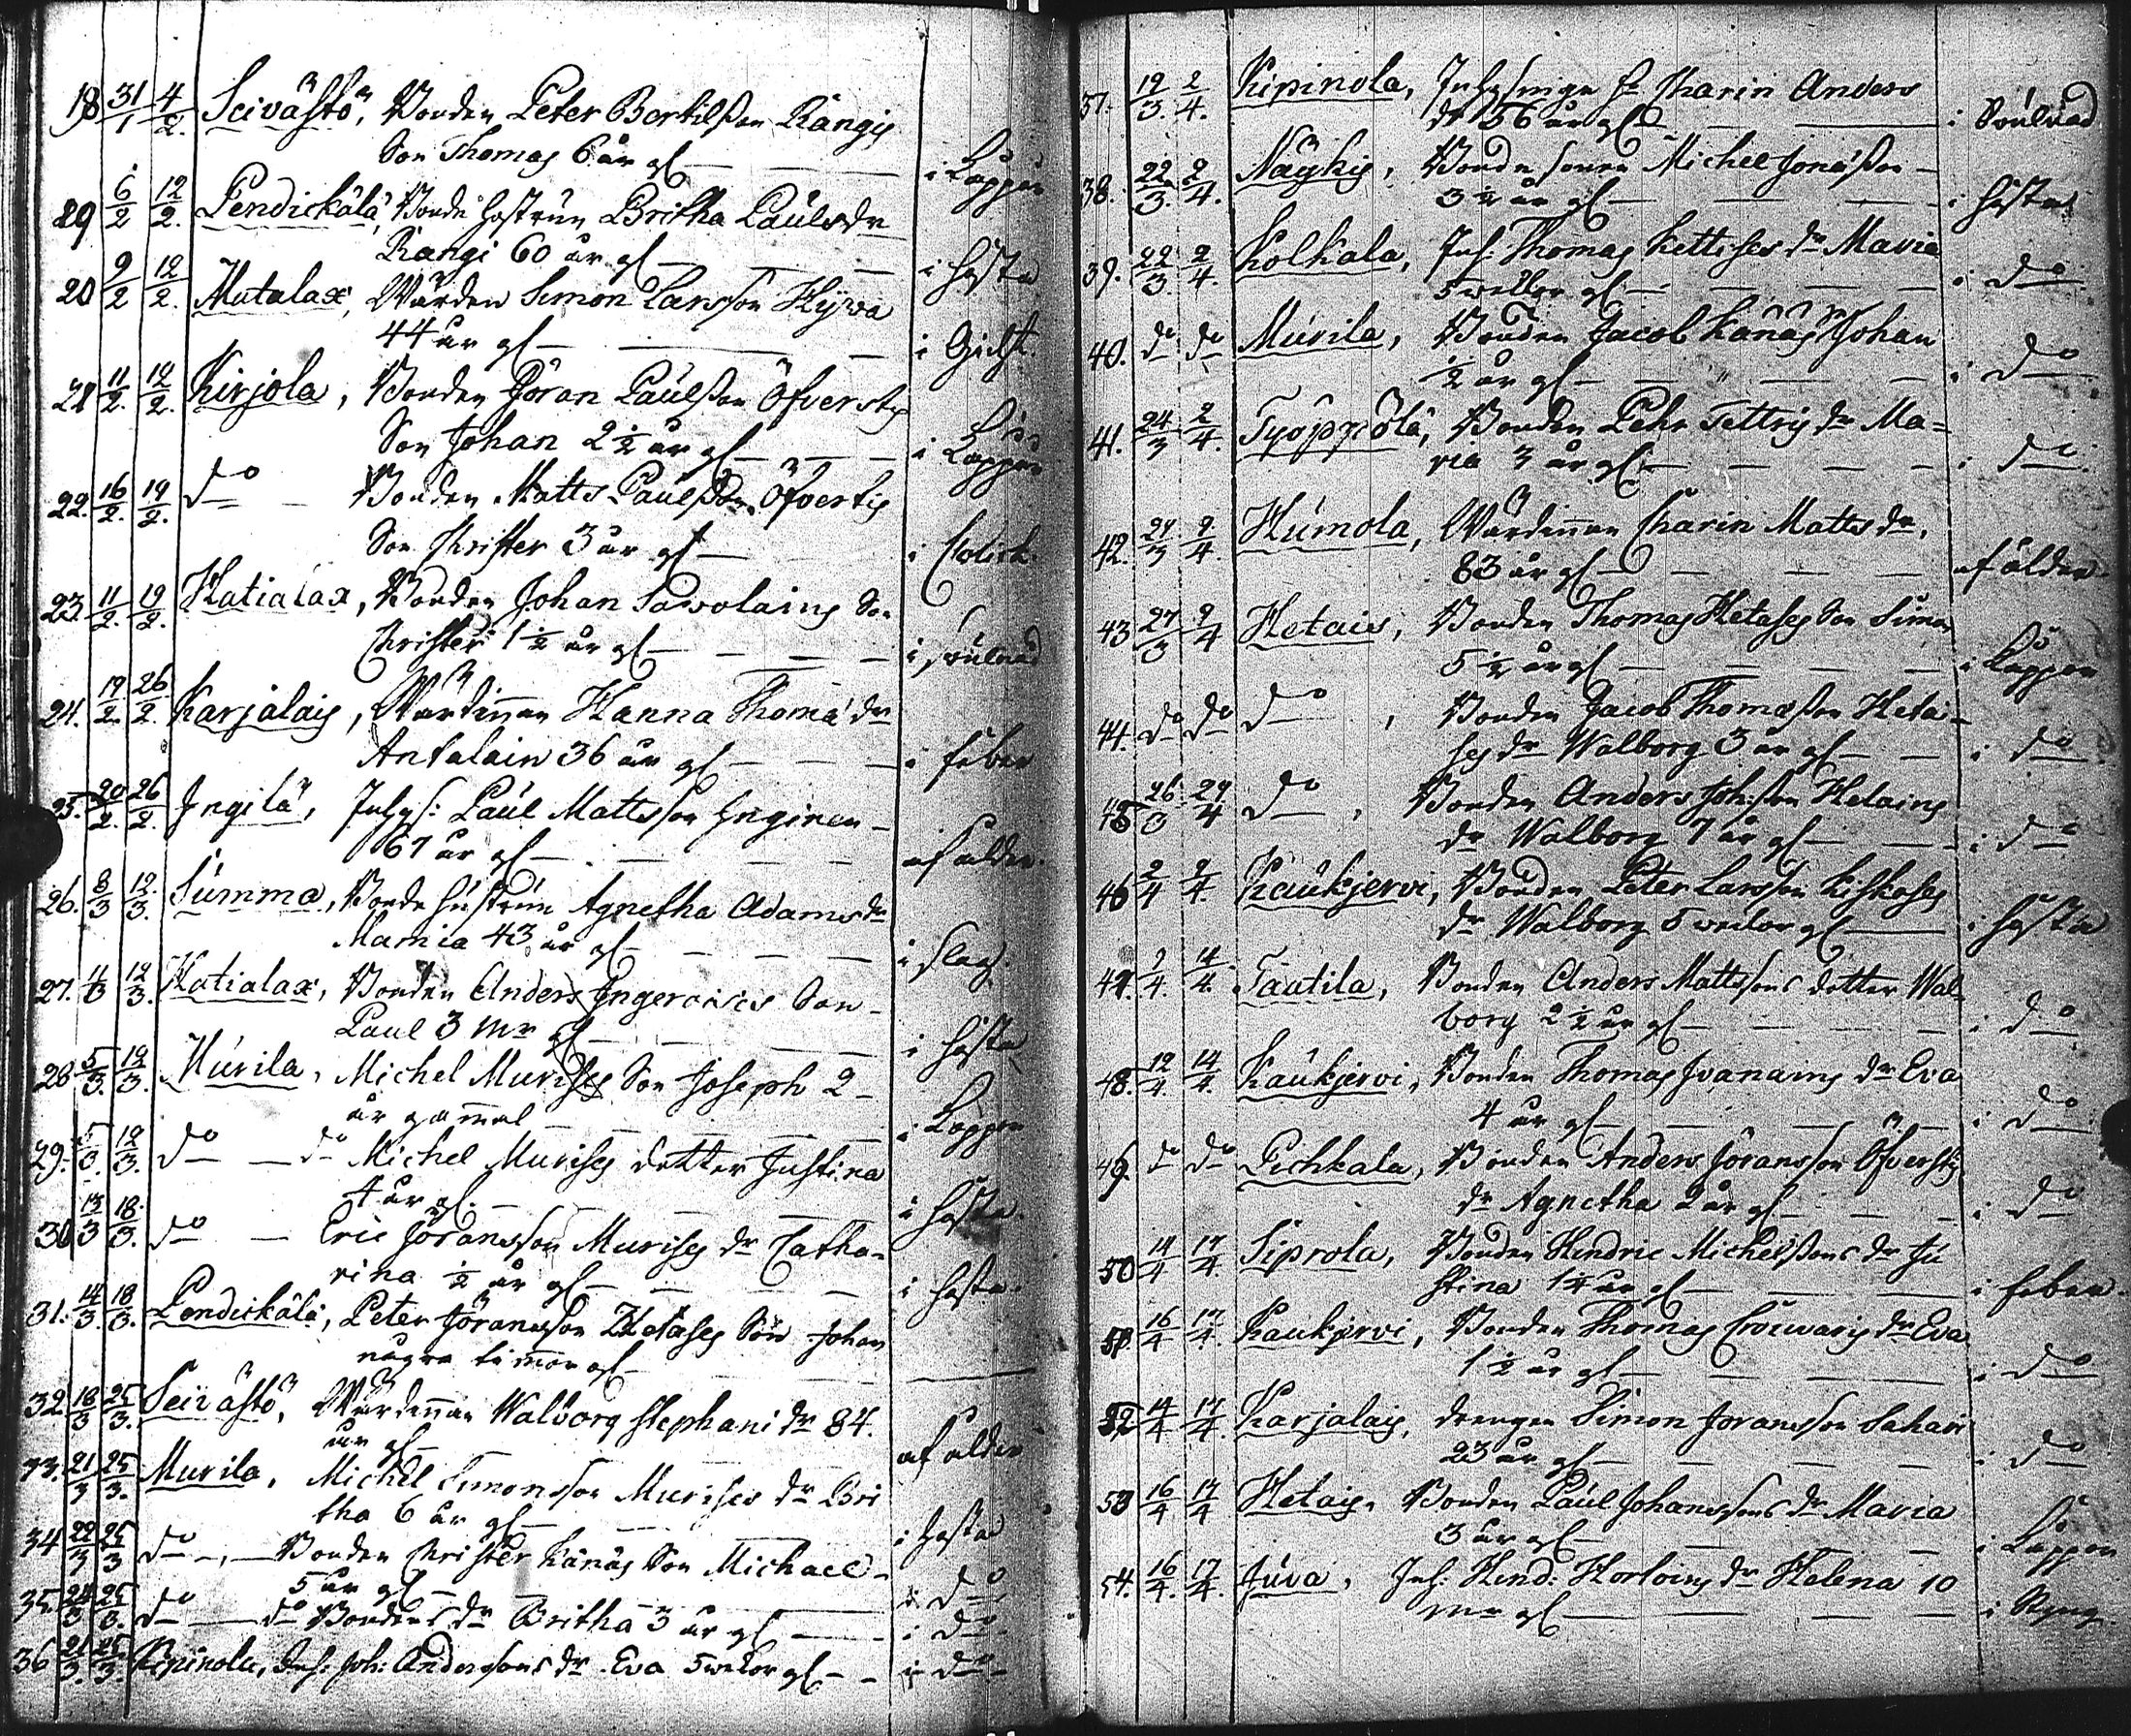 18 31/1 4/2. Seivästö, Bonden Peter Bertilsson Rängis
Son Thomas 6 år gl — i Koppor
19 6/2 12/2. Pendickälä, Bonde hustrun Britha Påulsdr
Rangi 60 år gl — i hosta
20 9/2 12/2. Mutalax, Wärden Simon Larsson Hÿwä
44 år gl — i Gicht.
21 11/2. 12/2. Kirjola, Bonden Jöran Påulsson Öfversty
Son Johan 2 1/2 år gl — i Koppor
22. 16/2. 19/2. do — Bonden Matts Påulsson Öfverstis
Son Christer 3 år gl — i Colick
23 11/2. 19/2. Hatialax, Bonden Johan Sawolains Son
Christer 1 1/2 år gl — i
24. 19/2. 26/2. Karjalais, Wärdinnan Hanna Thomædr
Antalain 36 år gl — i feber
25. 20/2. 26/2. Ingilä, Inhys: Påul Mattsson Hyginen
67 år gl — af ålder.
26. 3/3 12/3. Summa, Bonde hustrun Agnetha Adamsdr
Mamia 43 år gl — i slag.
27. 4/3 12/3. Hatialax, Bonden Anders Ingeroises Son
Paul 3 Mr gl — i hosta
28 5/3. 12/3. Murila, Michel Murises Son Joseph 2
år gammal — i Koppor
29. 5/3. 12/3. do — do Michel Murises dotter Justina
4 år gl. — i hosta.
30 13/3 18/3. do — Eric Jöransson Murises dr Catha-
rina 1/2 år gl — i hosta.
31. 14/3. 18/3. Pendickälä, Peter Jöransson Hetases Son Johan
några timmar gl —
32 18/3 25/3. Seivästö, Wärdinnan Walborg Stephani dr 84.
år gl — af ålder
33. 21/3 25/3. Murila, Michel Simonsson Murises dr Bri
tha 6 år gl — i hosta
34 22/3 25/3 do — , — Bonden Christer Känäs Son Michael
5 år gl — i do
35. 24/3 25/3. do — do Bondens dr Britha 3 år gl — i do
36 21/3. 25/3. Kipinola, Inh: Joh: Anderssons dr Eva 5 wekor gl — i do
37. 19/3. 2/4. Kipinola, Inhysinge h. Karin Anders
dr 56 år gl — i
38. 22/3. 2/4. Näykis, Bonde sonen Michel Jonæsson
3 1/2 år gl — i hosta
39. 22/3. 2/4. Kolkala, Inh: Thomas Kettises dr Maria
5 weckor gl — i do
40. do do Murila, Bonden Jacob Känäs Son Johan
1/2 år gl — i do
41. 24/3 2/4. Työppölä, Bonden Pehr Tettris dr Ma=
ria 3 år gl — i do.
42. 24/3 2/4. Humola, Wärdinnan Charin Matts dr.
83 år gl — af ålder.
43 27/3 2/4 Hetais, Bonden Thomas Hetases Son Simon
5 1/2 år gl — i Koppor
44. do do do, Bonden Jacob Thomasson Hetai-
ses dr Walborg 3 år gl — i do
45 26/3 29/4 do, Bonden Anders Joh:sson Hetains
dr Walborg 7 år gl — i do
46 2/4 9/4. Kaukjervi, Bonden Peter Larsson Kiskases
dr Walborg 5 weckor gl — i hosta
47. 7/4. 14/4. Taatila, Bonden Anders Mattssons dotter Wal-
borg 2 1/2 år gl — i do
48. 12/4. 14/4. Kaukjervi, Bonden Thomas Ivanains dr Eva
4 år gl — i do
49. do do Pichkala, Bonden Anders Jöransson Öfversty
dr Agnetha 2 år gl — i do
50 14/4 17/4 Siprola, Bonden Hindric Michelssons dr Ju
stina 14 år gl — i feber.
51. 16/4 17/4. Kaukjervi, Bonden Thomas Crouwaris dr Eva
1 1/2 år gl — i do
52 14/4 17/4. Karjalais, drengen Simon Joransson Sahari
23 år gl — i do
53 16/4 17/4 Hetais, Bonden Paul Johanssons dr Maria
3 år gl — i Koppor
54. 16/4. 17/4. Juva, Inh: Hind: Horloins dr Helena 10
Mr gl — i